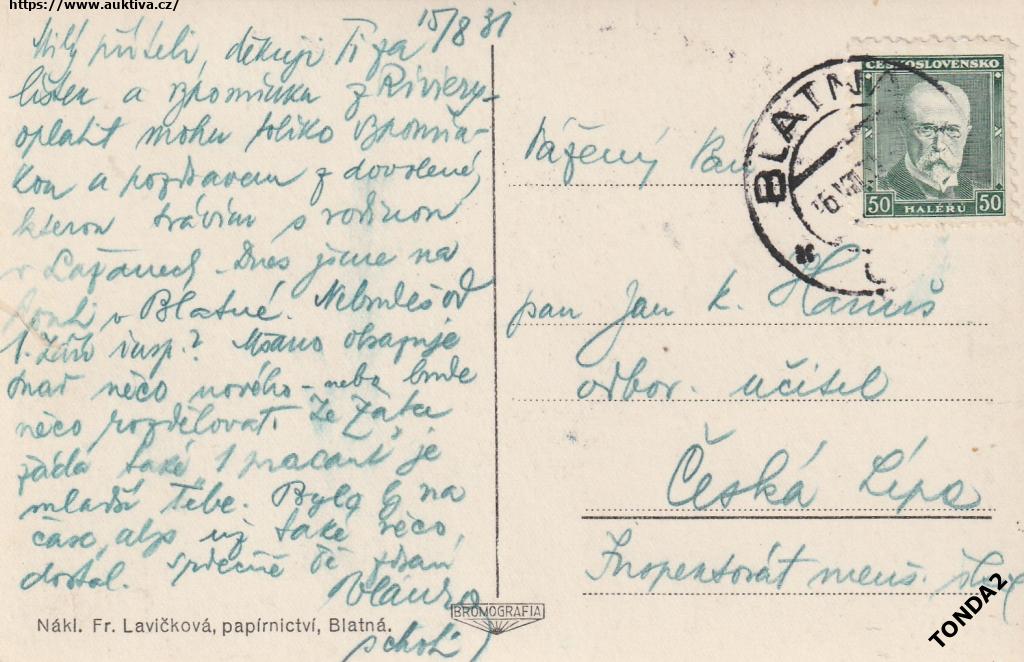 https://www.auktiva.cz/
15/8 31
Milý příteli, děkuji Ti za
lístek a vzpomínku z Riviery
oplatit mohu toliko vzpomín-
kou a pozdravem z dovolené,
kterou trávím s rodinou
v Lažanech. Dnes jsme na
v Blatné. Nebudeš od
1. září insp.?
něco nového - nebo bude
něco rozdělovat. Ze Žatce
žádá také 1 je
mladší Tebe. Bylo by na
čase, abys už také něco
dostal. Srdečně Tě zdraví
Nákl. Fr. Lavičková, papírnictví, Blatná.
BROMOGRAFIA
ČESKOSLOVENSKO
50 HALÉŘŮ 50
BLATNÁ
Vážený Pán
pan Jan K. Hanuš
odbor. učitel
Česká Lípa
Inspektorát menš. škol
TONDA2